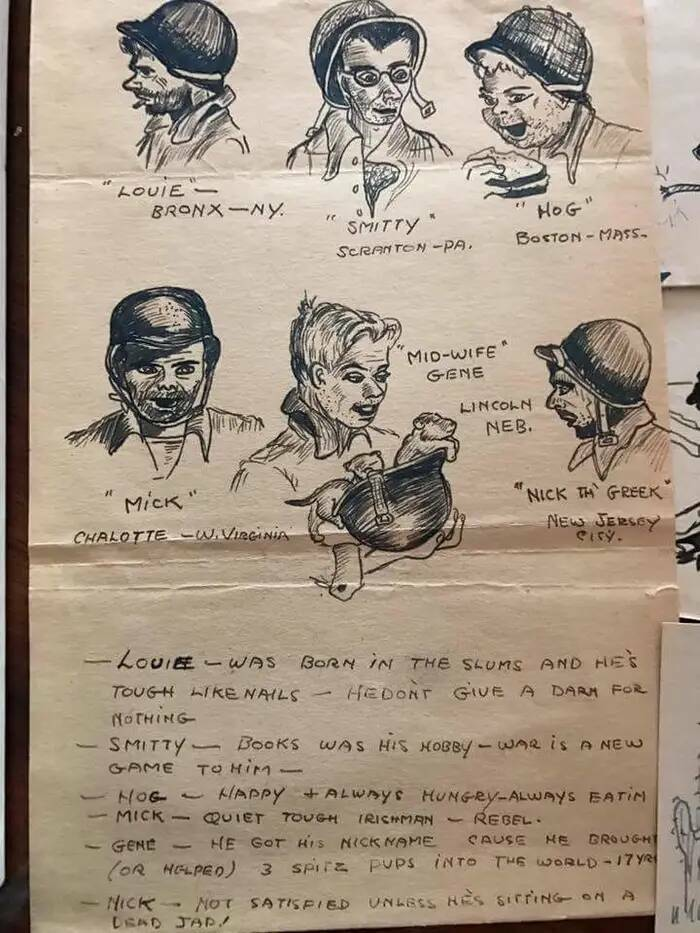 "LOUIE" —
BRONX — NY.
"SMITTY"
SCRANTON - PA.
"HOG"
BOSTON - MASS-
"MICK"
CHALOTTE - W. VIRGINIA
"MID-WIFE"
GENE
LINCOLN
NEB.
"NICK TH' GREEK"
NEW JERSEY
CITY.
— LOUIE — WAS BORN IN THE SLUMS AND HE'S
TOUGH LIKE NAILS — HE DON'T GIVE A DARN FOR
NOTHING
— SMITTY — BOOKS WAS HIS HOBBY - WAR IS A NEW
GAME TO HIM —
— HOG — HAPPY + ALWAYS HUNGRY - ALWAYS EATIN
— MICK — QUIET TOUGH IRISHMAN — REBEL.
— GENE — HE GOT HIS NICKNAME CAUSE HE BROUGHT
(OR HELPED) 3 SPITZ PUPS INTO THE WORLD - 17 YR
— NICK — NOT SATISFIED UNLESS HE'S SITTING ON A
DEAD JAP!